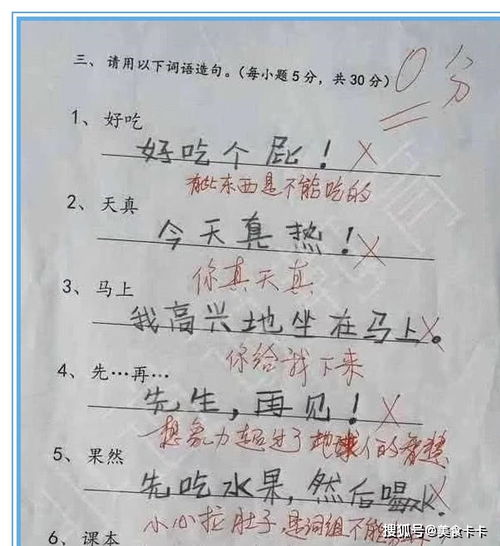 三、请用以下词语造句。(每小题5分，共30分) 0分
1、好吃
好吃个屁！
有些东西是不能吃的
2、天真
今天真热！
你真天真
3、马上
我高兴地坐在马上。
你给我下来
4、先…再…
先生，再见！
想象力超过了地球人的智慧
5、果然
先吃水果，然后喝水。
小心拉肚子 是词组不能
6、课本
搜狐号@美食卡卡